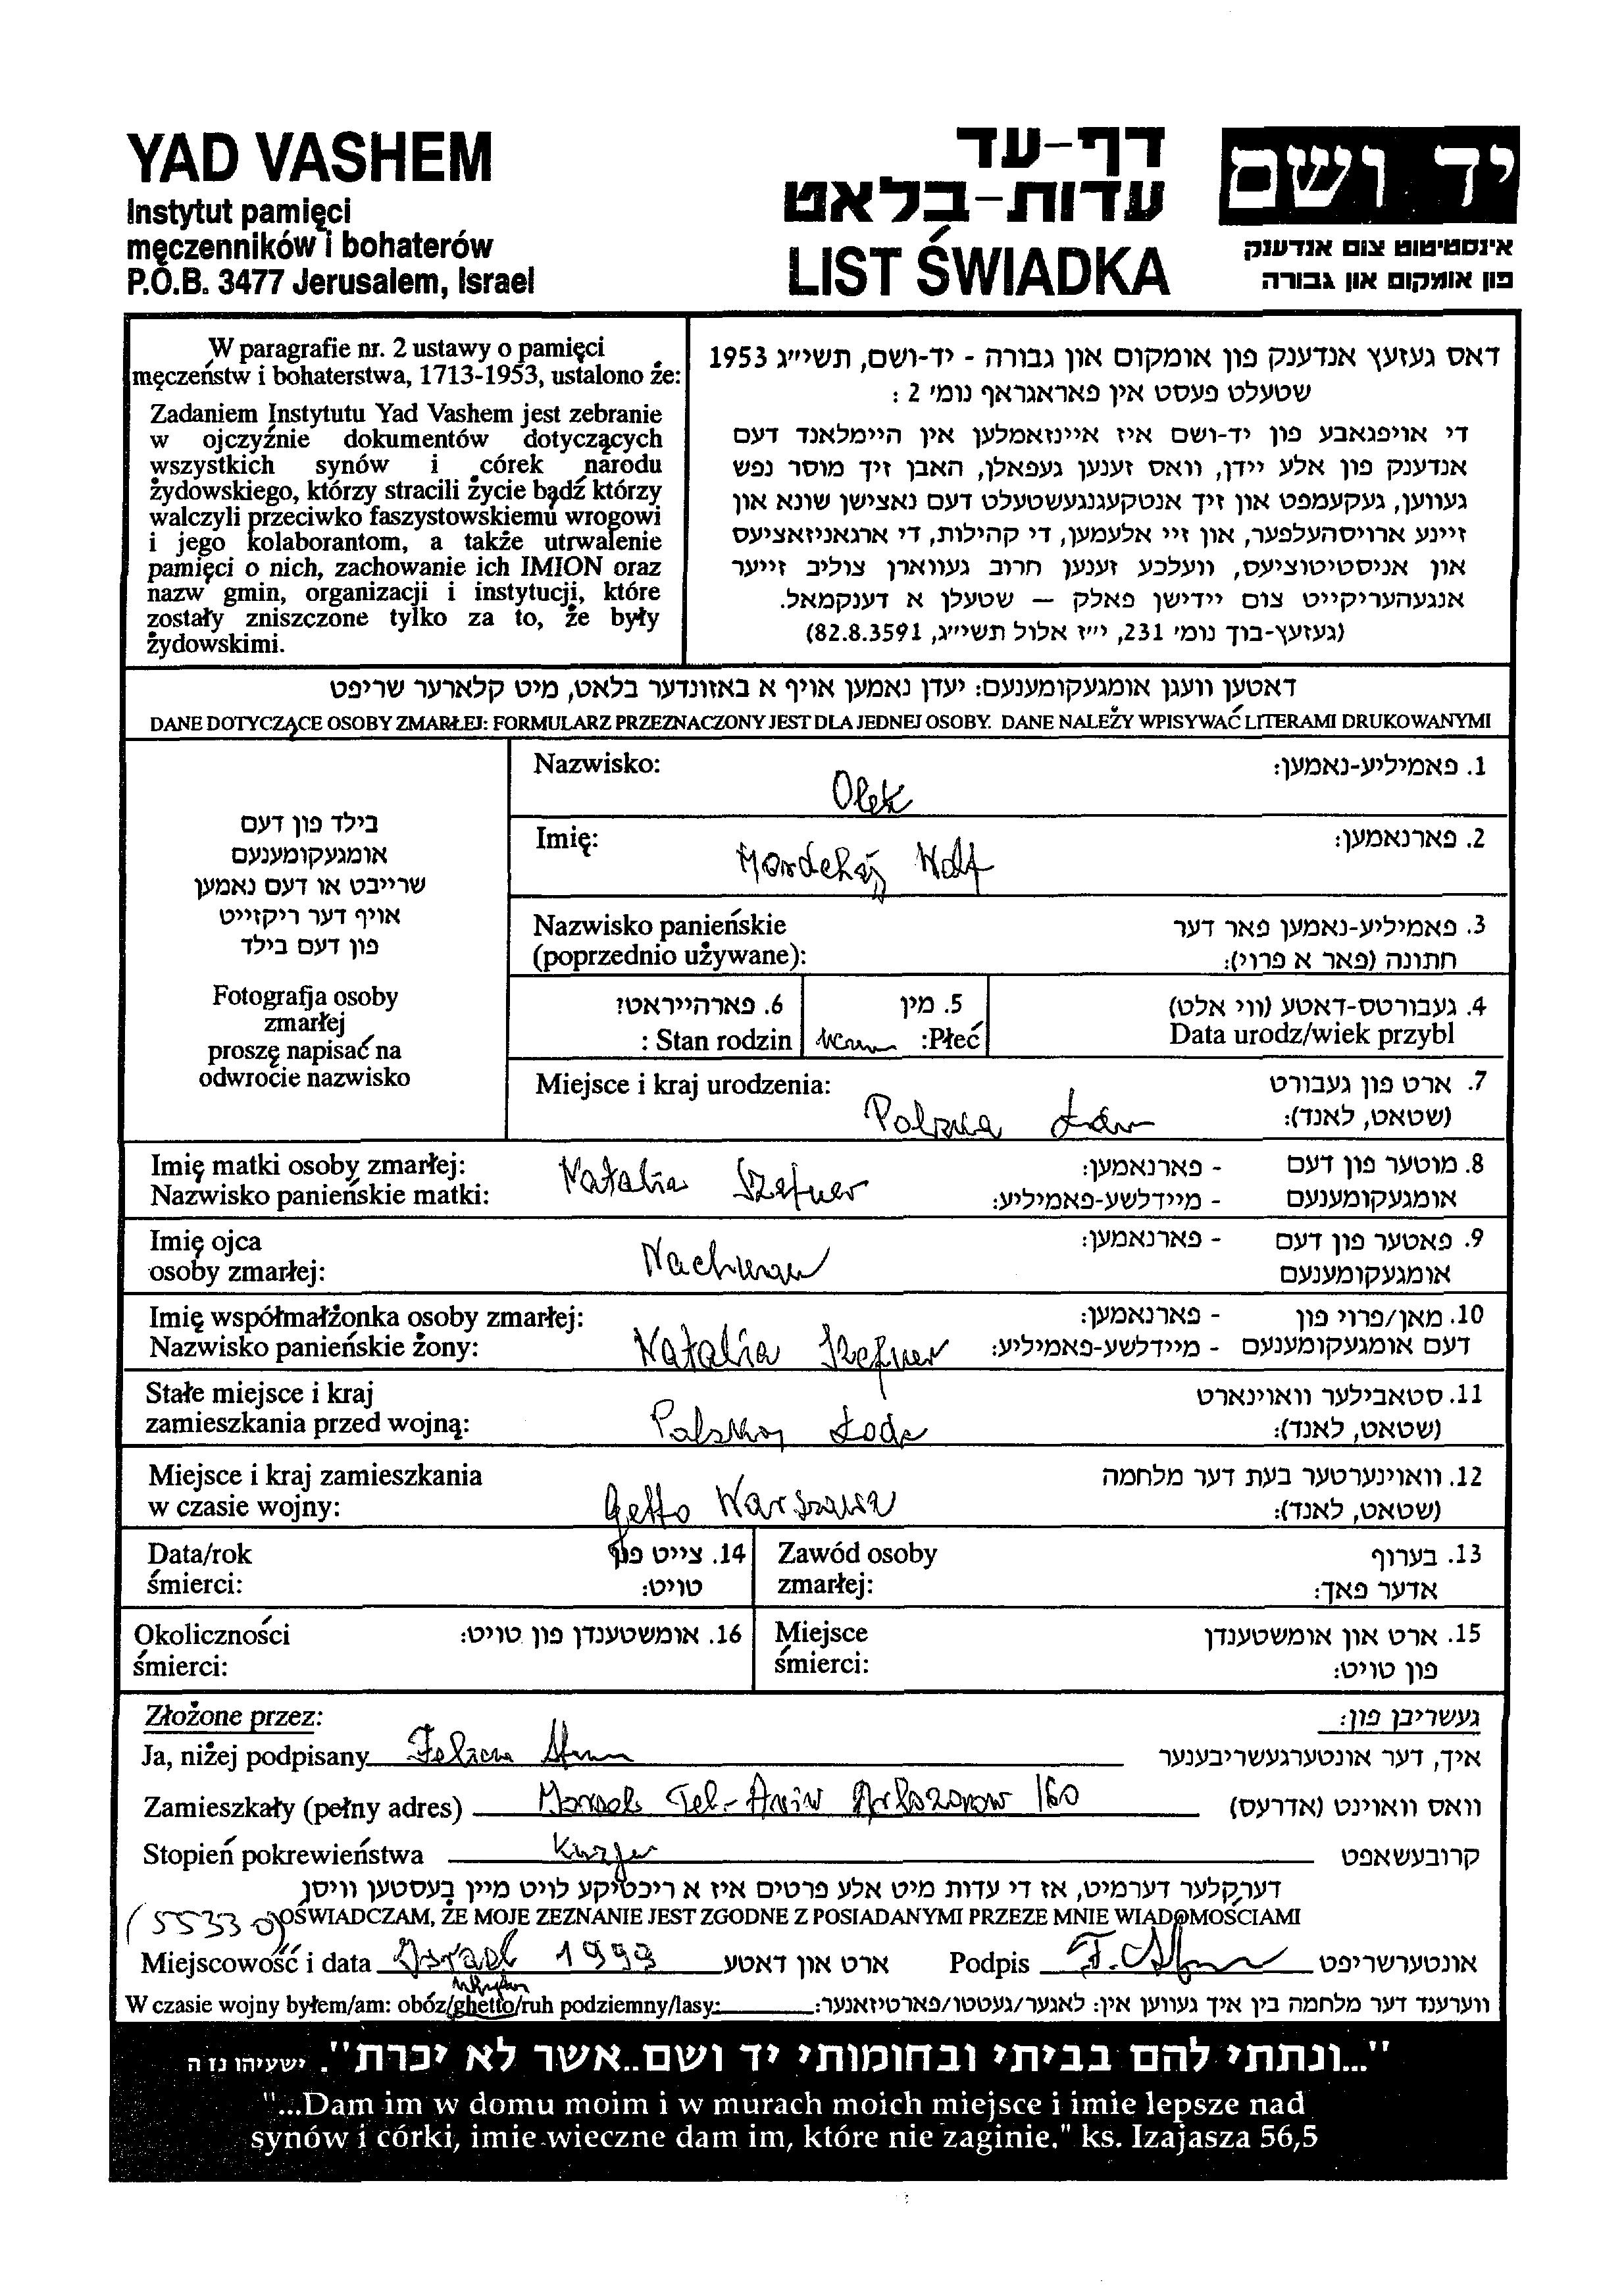 YAD VASHEM
Instytut pamięci
męczenników i bohaterów
P.O.B. 3477 Jerusalem, Israel
דף-עד
עדות-בלאט
LIST ŚWIADKA
יד ושם
אינסטיטוט צום אנדענק
פון אומקום און גבורה
W paragrafie nr. 2 ustawy o pamięci
męczeństw i bohaterstwa, 1713-1953, ustalono że:
Zadaniem Instytutu Yad Vashem jest zebranie
w ojczyźnie dokumentów dotyczących
wszystkich synów i córek narodu
żydowskiego, którzy stracili życie bądź którzy
walczyli przeciwko faszystowskiemu wrogowi
i jego kolaborantom, a także utrwalenie
pamięci o nich, zachowanie ich IMION oraz
nazw gmin, organizacji i instytucji, które
zostały zniszczone tylko za to, że były
żydowskimi.
דאס געזעץ אנדענק פון אומקום און גבורה - יד-ושם, תשי״ג 1953
שטעלט פעסט אין פאראגראף נומ׳ 2 :
די אויפגאבע פון יד-ושם איז איינזאמלען אין היימלאנד דעם
אנדענק פון אלע יידן, וואס זענען געפאלן, האבן זיך מוסר נפש
געווען, געקעמפט און זיך אנטקעגנגעשטעלט דעם נאצישן שונא און
זיינע ארויסהעלפער, און זיי אלעמען, די קהילות, די ארגאניזאציעס
און אניסטיטוציעס, וועלכע זענען חרוב געווארן צוליב זייער
אנגעהעריקייט צום יידישן פאלק – שטעלן א דענקמאל.
(געזעץ-בוך נומ׳ 231, י״ז אלול תשי״ג, 82.8.3591)
דאטען וועגן אומגעקומענעם: יעדן נאמען אויף א באזונדער בלאט, מיט קלארער שריפט
DANE DOTYCZĄCE OSOBY ZMARŁEJ: FORMULARZ PRZEZNACZONY JEST DLA JEDNEJ OSOBY. DANE NALEŻY WPISYWAĆ LITERAMI DRUKOWANYMI
בילד פון דעם
אומגעקומענעם
שרייבט או דעם נאמען
אויף דער ריקזייט
פון דעם בילד
Fotografja osoby
zmarłej
proszę napisać na
odwrocie nazwisko
Nazwisko: Olek 1. פאמיליע-נאמען:
Imię: Mordchaj Wolf 2. פארנאמען:
Nazwisko panieńskie 3. פאמיליע-נאמען פאר דער
(poprzednio używane): חתונה (פאר א פרוי):
6. פארהייראט? 5. מין 4. געבורטס-דאטע (ווי אלט)
: Stan rodzin :Płeć Data urodz/wiek przybl
Miejsce i kraj urodzenia: Polska 7. ארט פון געבורט
(שטאט, לאנד):
Imię matki osoby zmarłej: Natalia - פארנאמען: 8. מוטער פון דעם
Nazwisko panieńskie matki: Szefner - מיידלשע-פאמיליע: אומגעקומענעם
Imię ojca - פארנאמען: 9. פאטער פון דעם
osoby zmarłej: Nachman אומגעקומענעם
Imię współmałżonka osoby zmarłej: - פארנאמען: 10. מאן/פרוי פון
Nazwisko panieńskie żony: Natalia Szefner - מיידלשע-פאמיליע: דעם אומגעקומענעם
Stałe miejsce i kraj 11. סטאבילער וואוינארט
zamieszkania przed wojną: Polska Łodz (שטאט, לאנד):
Miejsce i kraj zamieszkania 12. וואוינערטער בעת דער מלחמה
w czasie wojny: Getto Warszawa (שטאט, לאנד):
Data/rok 14. צייט פון Zawód osoby 13. בערוף
śmierci: טויט: zmarłej: אדער פאך:
Okoliczności 16. אומשטענדן פון טויט: Miejsce 15. ארט און אומשטענדן
śmierci: śmierci: פון טויט:
Złożone przez: געשריבן פון:
Ja, niżej podpisany איך, דער אונטערגעשריבענער
Zamieszkały (pełny adres) Tel-Aviv Arlozorow 160 וואס וואוינט (אדרעס)
Stopień pokrewieństwa Kuzyn קרובעשאפט
דערקלער דערמיט, אז די עדות מיט אלע פרטים איז א ריכטיקע לויט מיין בעסטען וויסן
(55330) OŚWIADCZAM, ŻE MOJE ZEZNANIE JEST ZGODNE Z POSIADANYMI PRZEZE MNIE WIADOMOŚCIAMI
Miejscowość i data Israel 1999 ארט און דאטע Podpis אונטערשריפט
W czasie wojny byłem/am: obóz/ghetto/ruh podziemny/lasy: ווערענד דער מלחמה בין איך געווען אין: לאגער/געטטו/פארטיזאנער:
"...ונתתי להם בביתי ובחומותי יד ושם..אשר לא יכרת". ישעיהו נז ה
"...Dam im w domu moim i w murach moich miejsce i imie lepsze nad
synów i córki, imie wieczne dam im, które nie zaginie." ks. Izajasza 56,5